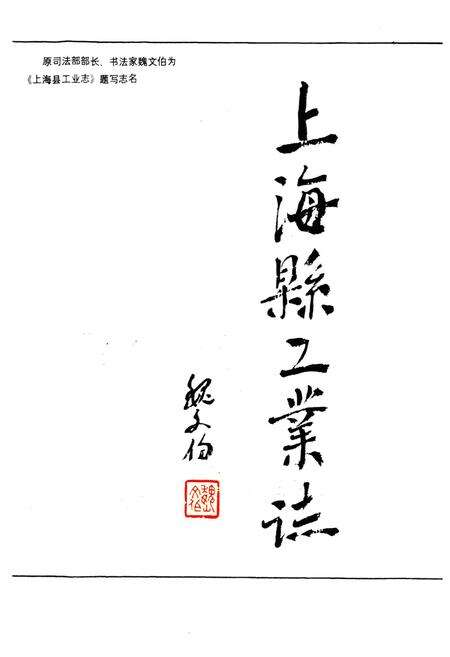 原司法部部长、书法家魏文伯为
《上海县工业志》题写志名
上海縣工業誌
魏文伯
魏文伯